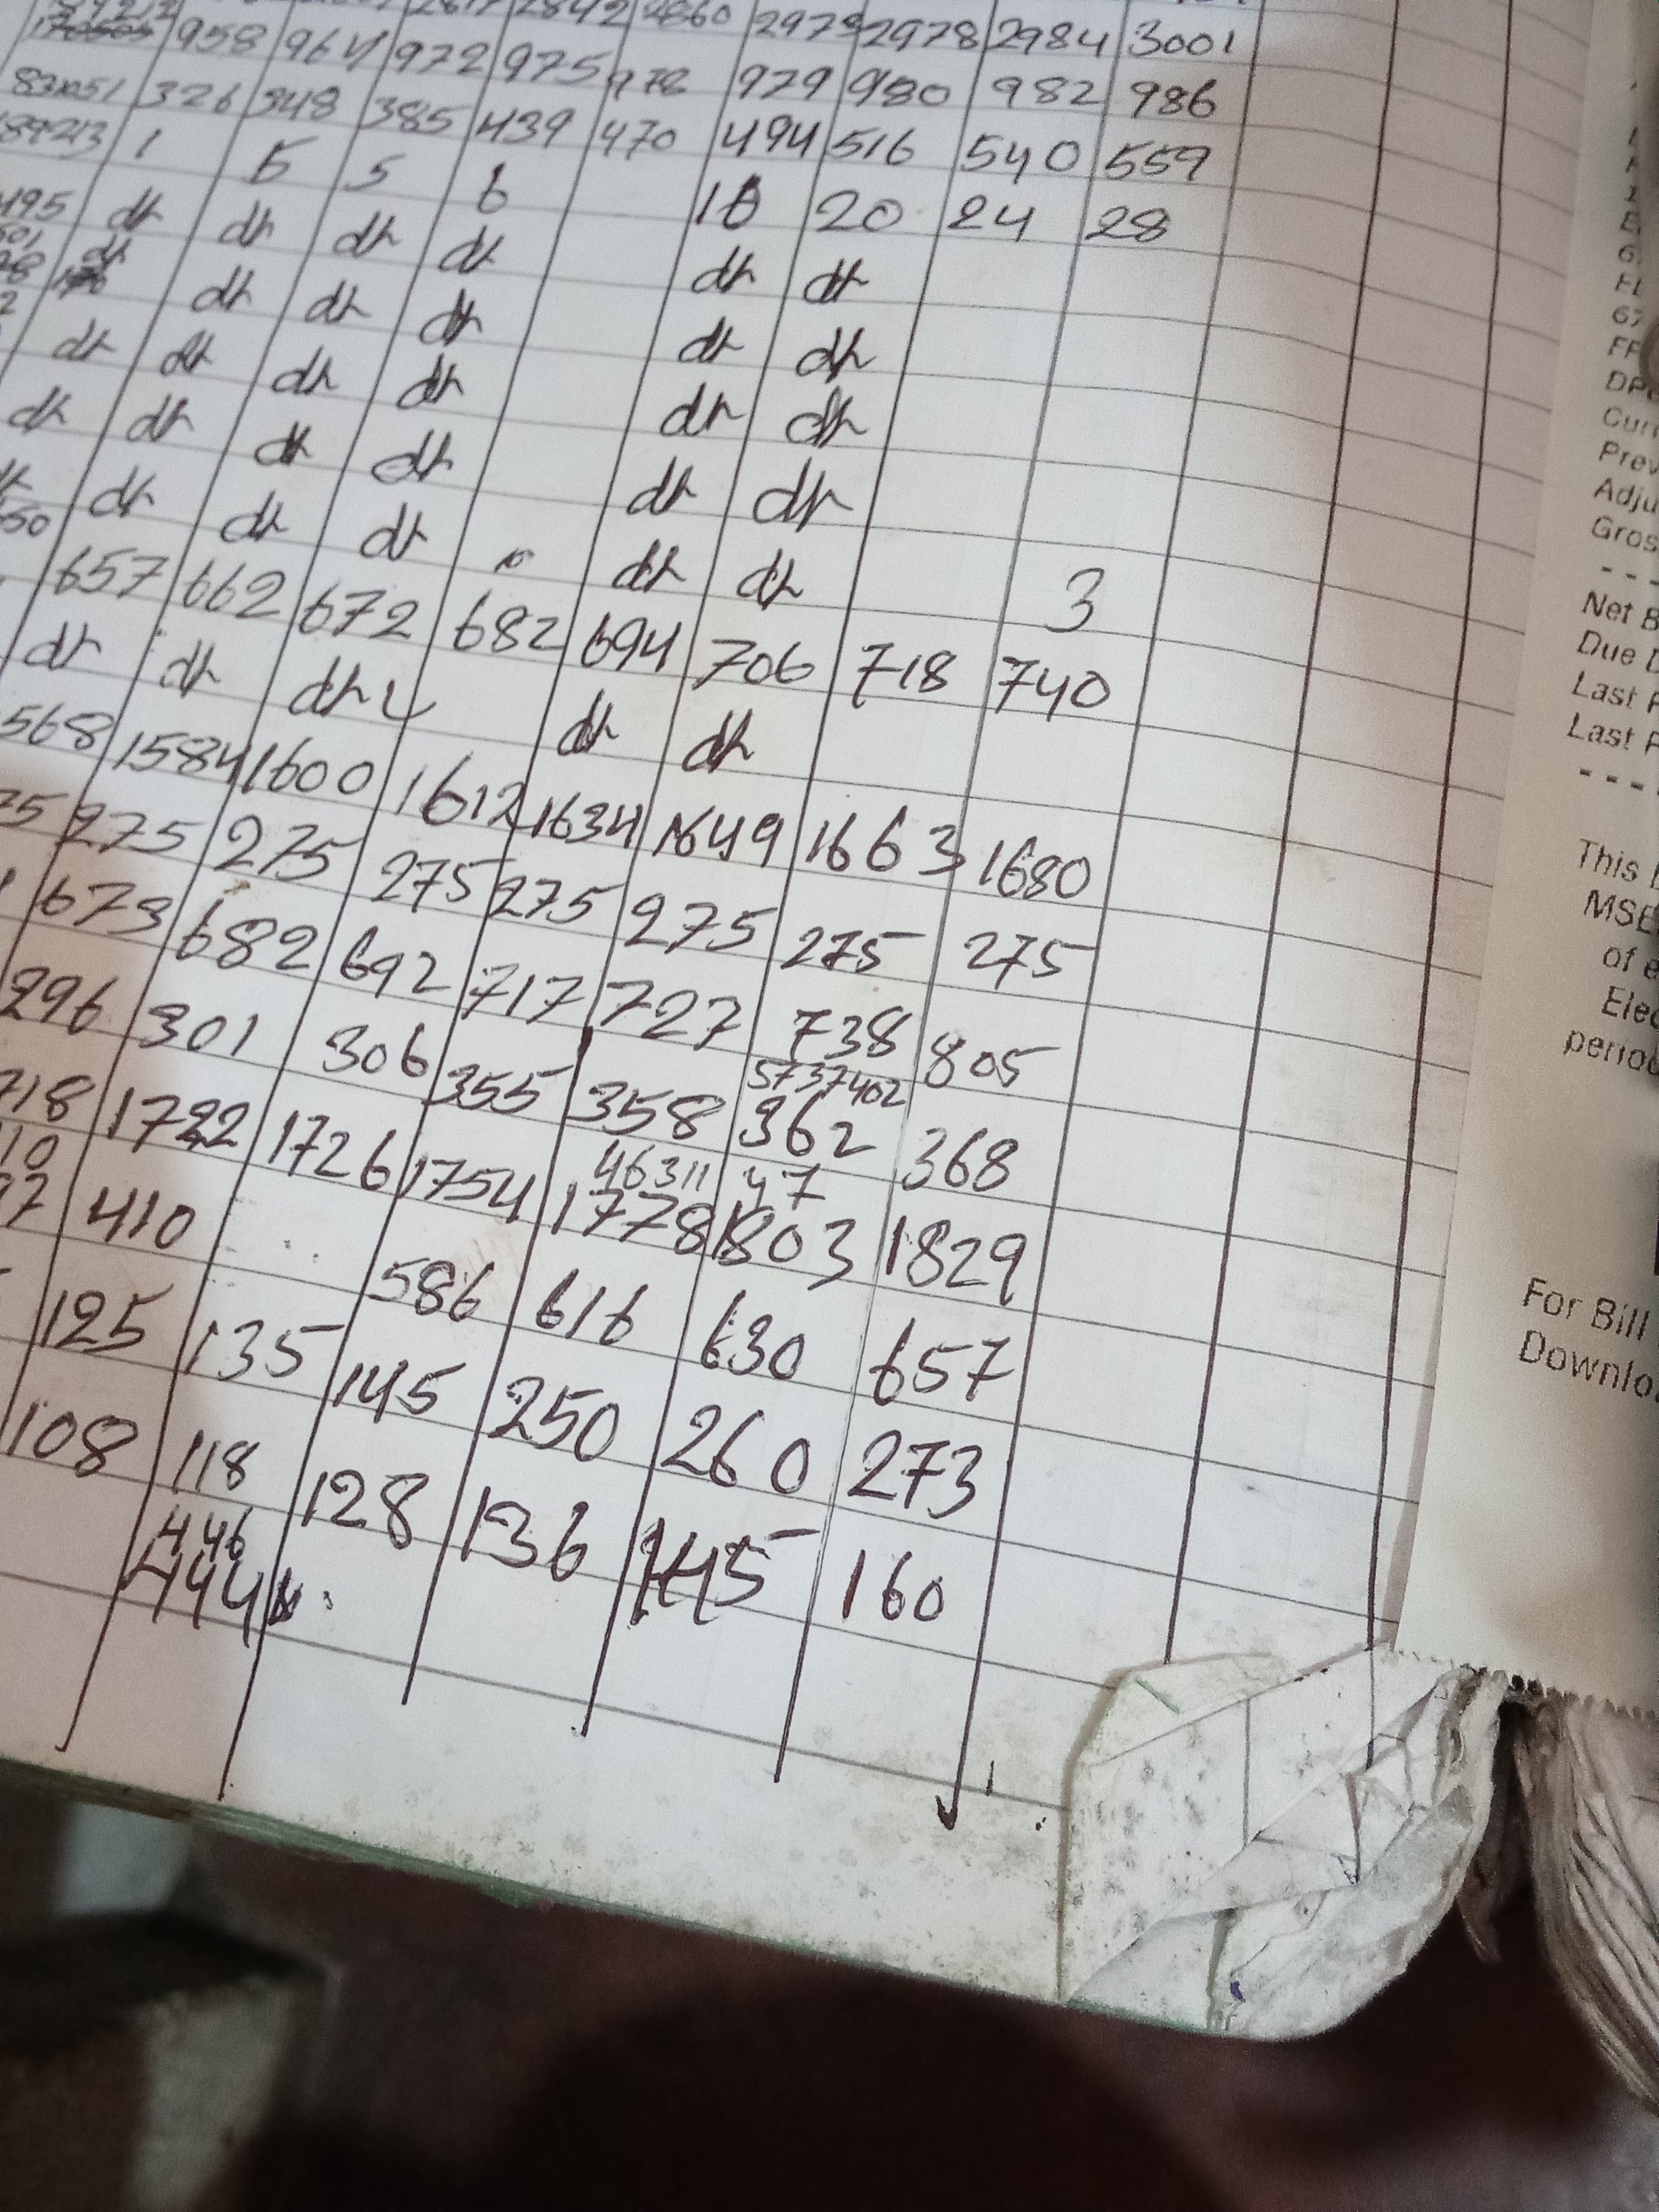 2842 2860 2975 2978 2984 3001
958 964 972 975 978 979 980 982 986
326 348 385 439 470 494 516 540 559
89213 1 5 5 6 18 20 24 28
495 dr dr dr dr dr dr
dr dr dr dr dr dr
dr dr dr dr dr dr
dr dr dr dr dr dr
dr dr dr dr dr 3
657 662 672 682 694 706 718 740
dr dr dr dr dr
568 1584 1600 1612 1634 1649 1663 1680
75 275 275 275 275 275 275 275
673 682 692 717 727 738 805
5737402
296 301 306 355 358 362 368
46311 47
718 1722 1726 1754 1778 1803 1829
410 586 616 630 657
125 135 145 250 260 273
108 118 128 136 145 160
446
444
Curr
Prev
Adju
Gros
Net B
Due D
Last P
Last P
This
MSE
of
Elec
period
For Bill
Downlo